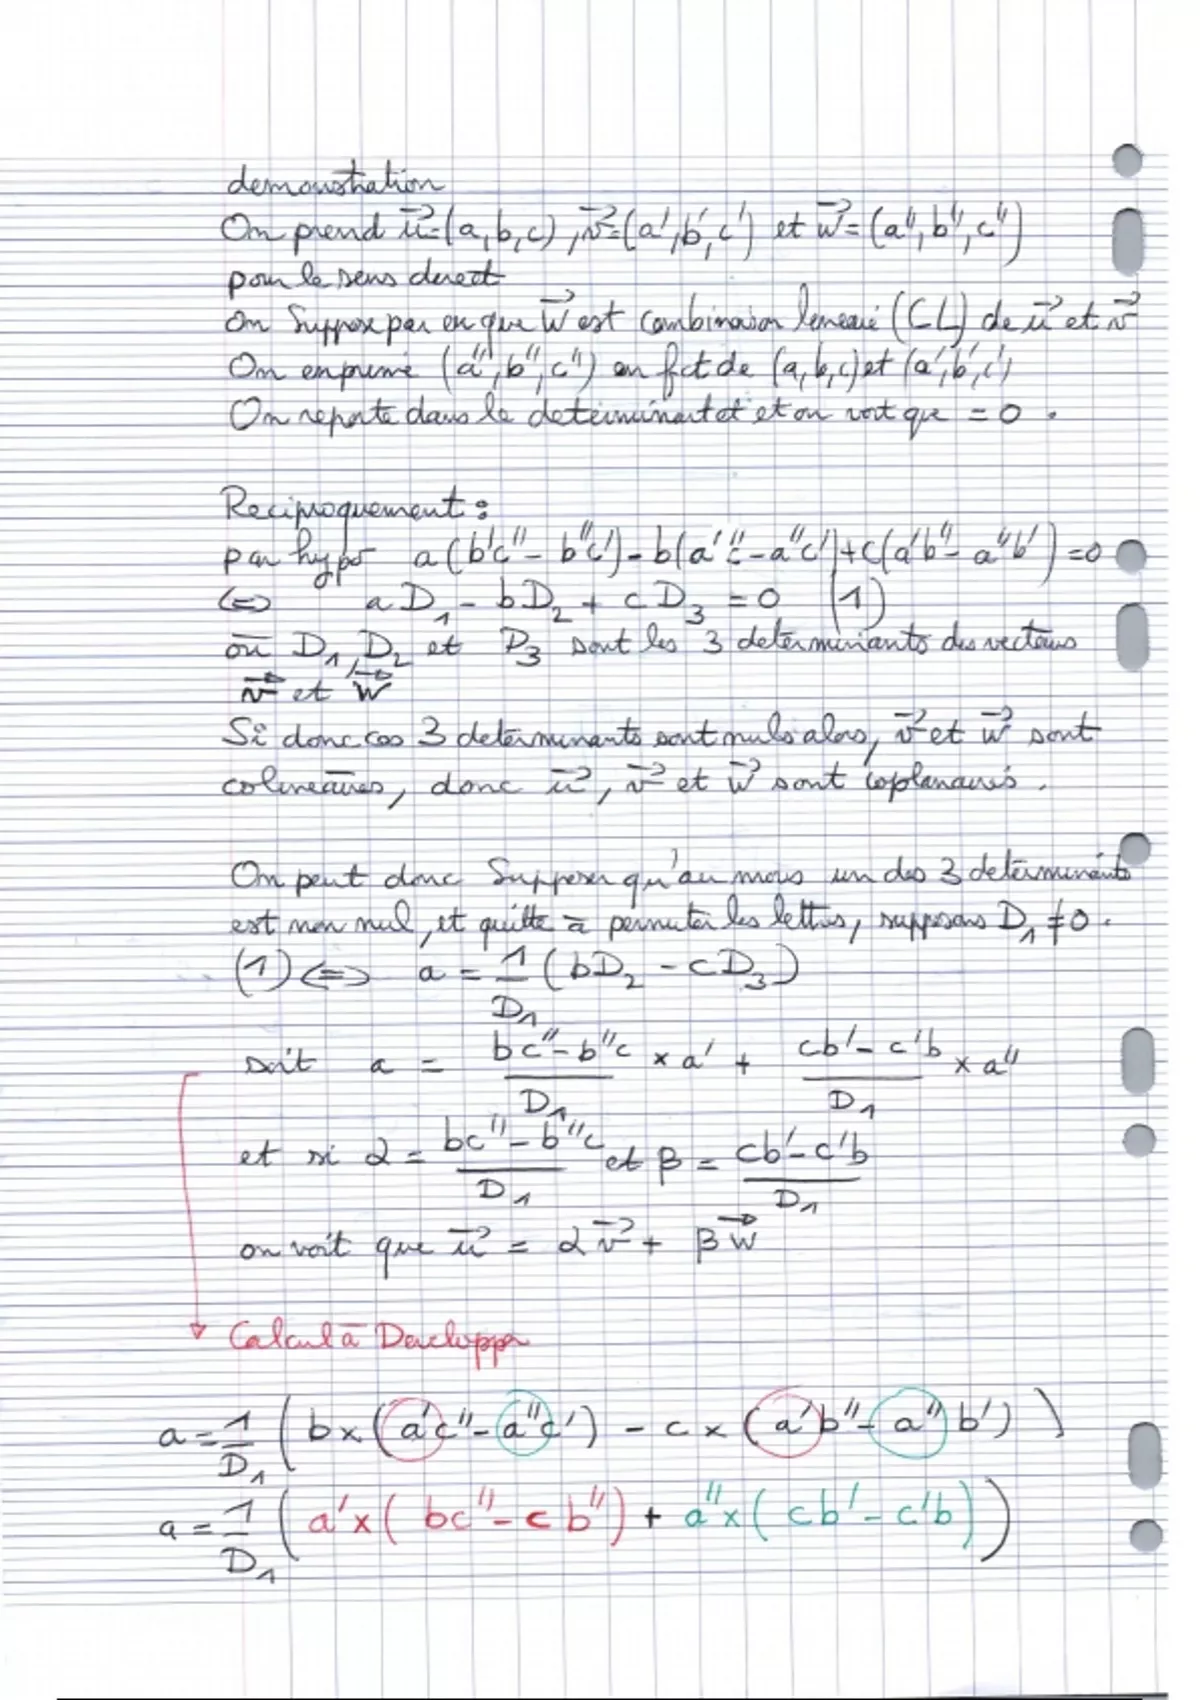 demonstration
On prend u⃗=(a,b,c), v⃗=(a',b',c') et w⃗=(a'',b'',c'')
pour le sens direct
On suppose par ex que w⃗ est combinaison lineaire (CL) de u⃗ et v⃗
On exprime (a'',b'',c'') en fct de (a,b,c) et (a',b',c')
On reporte dans le determinant et on voit que = 0.
Reciproquement :
par hypo a(b'c''- b''c') - b(a'c''- a''c') + c(a'b''- a''b') = 0
⇔ aD₁ - bD₂ + cD₃ = 0 (1)
où D₁, D₂ et D₃ sont les 3 determinants des vecteurs
v⃗ et w⃗
Si donc ces 3 determinants sont nuls alors, v⃗ et w⃗ sont
colineaires, donc u⃗, v⃗ et w⃗ sont coplanaires.
On peut donc Supposer qu'au moins un des 3 determinants
est non nul, et quitte à permuter les lettres, supposons D₁ ≠ 0.
(1) ⇔ a = 1/D₁ (bD₂ - cD₃)
soit a = (bc''- b''c)/D₁ × a' + (cb'- c'b)/D₁ × a''
et si α = (bc''- b''c)/D₁ et β = (cb'- c'b)/D₁
on voit que u⃗ = αv⃗ + βw⃗
Calcul à Developper
a = 1/D₁ (b×(a'c''- a''c') - c×(a'b''- a''b'))
a = 1/D₁ (a'×(bc''- cb'') + a''×(cb'- c'b))